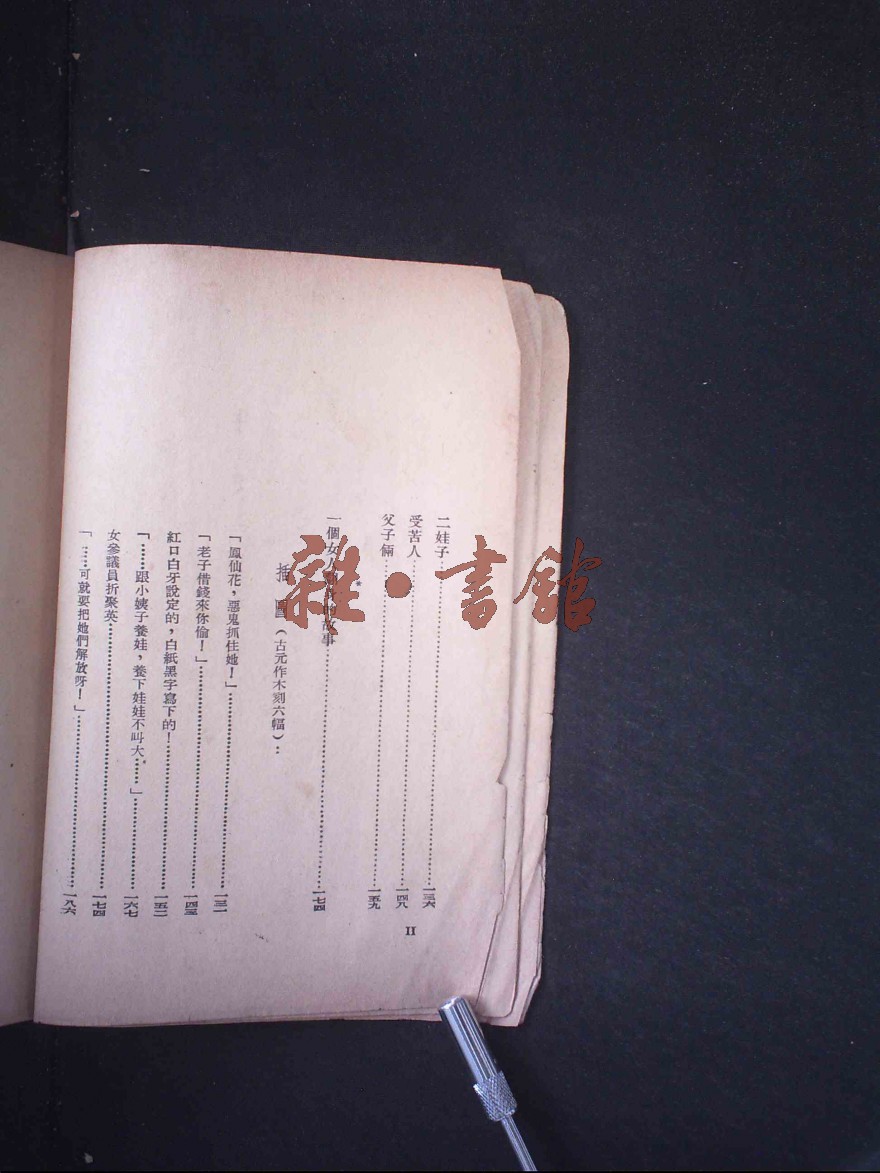 二娃子……………………………一三六
受苦人……………………………一四八
父子倆……………………………一五九
一個女人 的故事……………………………一七四
插圖（古元作木刻六幅）：
「鳳仙花，惡鬼抓住她！」……………………………一三一
「老子借錢來你偷！」……………………………一四三
紅口白牙說定的，白紙黑字寫下的！……………………………一五二
「……跟小姨子養娃，養下娃娃不叫大……」……………………………一六七
女參議員折聚英……………………………一七四
「……可就要把她們解放呀！」……………………………一八六
II
雜·書館